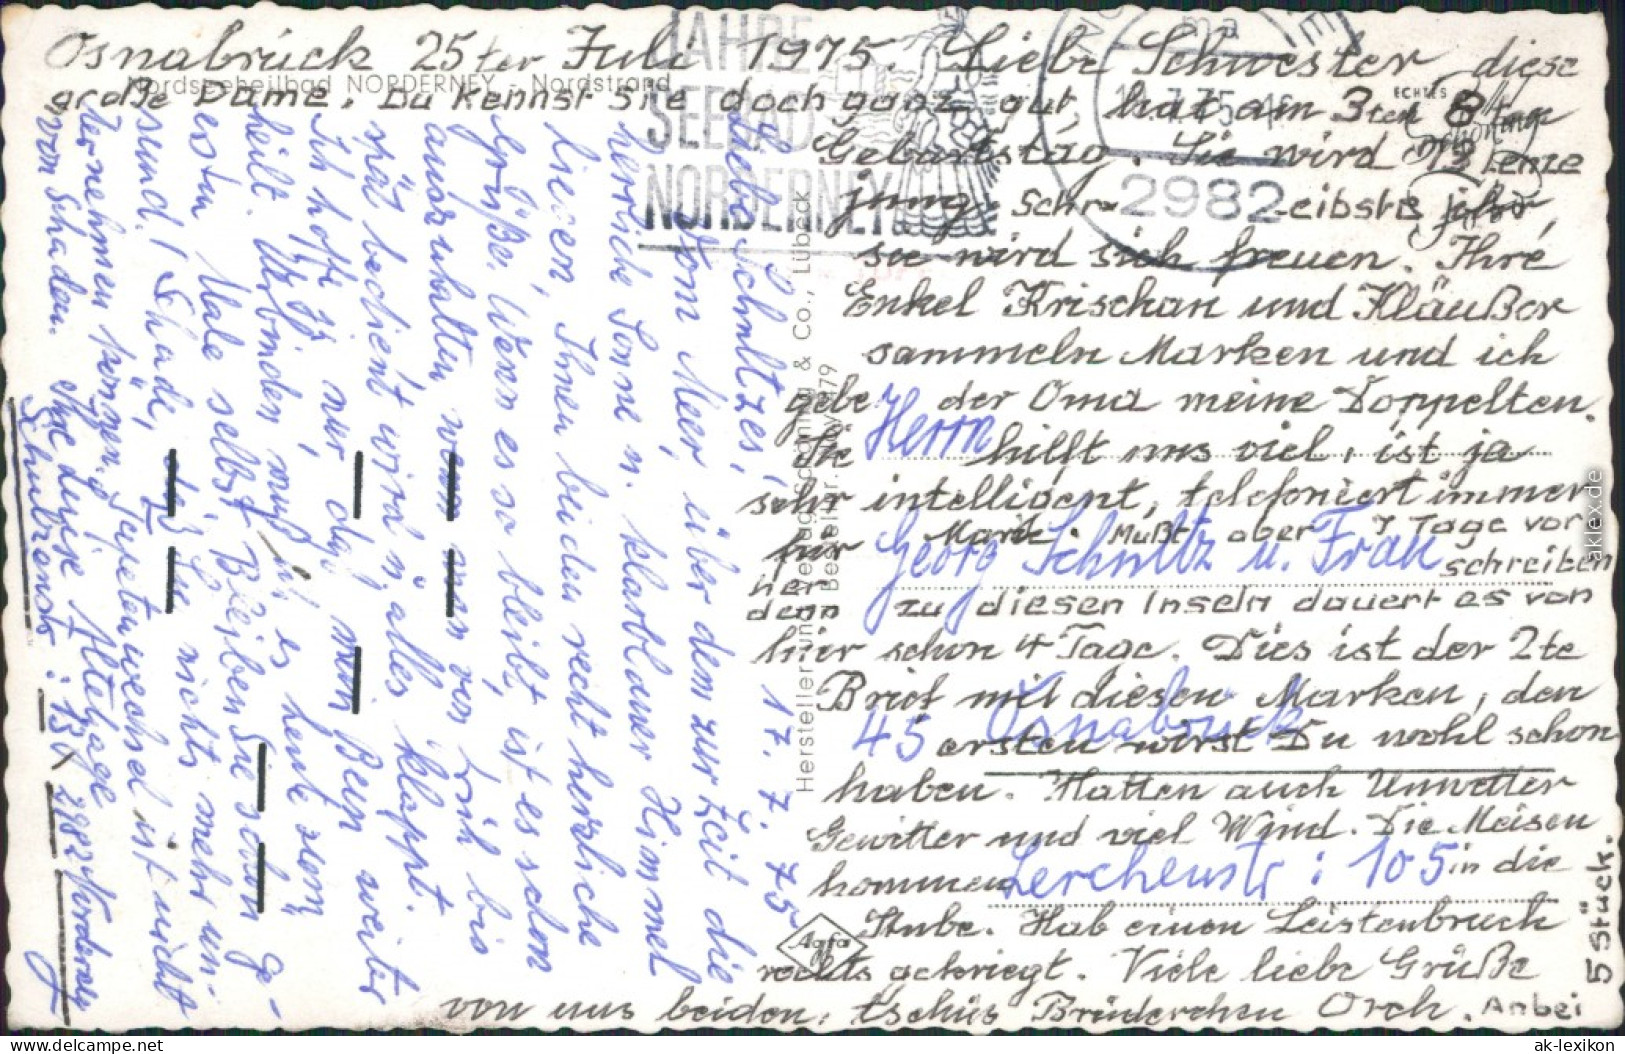 Osnabrück 25ter Juli 1975. Liebe Schwester diese
große Dame, Du kennst Sie doch ganz gut, hat am 3ten 8
Geburtstag. Sie wird 75 Lenze
jung. Schreibste
sie wird sich freuen. Ihre
Enkel Krischan und Kläußor
sammeln Marken und ich
gebe der Oma meine Doppelten.
Die hilft uns viel, ist ja
sehr intelligent, telefoniert immer
für Mark. Mußt aber 7 Tage vor
her schreiben
denn zu diesen Inseln dauert es von
hier schon 4 Tage. Dies ist der 2te
Brief mit diesen Marken, den
ersten wirst Du wohl schon
haben. Hatten auch Unwetter
Gewitter und viel Wind. Die Meisen
kommen in die
Stube. Hab einen Leistenbruch
rechts gekriegt. Viele liebe Grüße
von uns beiden, tschüs Brüderchen Orch. Anbei
5 Stück.
Nordseeheilbad NORDERNEY - Nordstrand
JAHRE
SEEBAD
NORDERNEY
2982
ECHTES
Schöning
Herrn
Georg Schultz u. Frau
45 Osnabrück
Lerchenstr: 105
Hersteller und Verlag Schöning & Co., Lübeck
Agfa
17. 7. 75
Liebe Schultzes,
Vom Meer, über dem zur Zeit die
herrliche Sonne u. klarblauer Himmel
liegen, Ihnen beiden recht herzliche
Grüße. Wenn es so bleibt, ist es schon
auszuhalten, wenn man von früh bis
spät bedient wird u. alles klappt.
Ich hoffe ja nur, daß mein Bein weiter
heilt. Verbinden muß ich es heute zum
ersten Male selbst. Bleiben Sie schön ge-
sund! Schade, daß Sie nichts mehr un-
ternehmen können. Tapetenwechsel ist nicht
von Schaden. Ihre Luise Altehage
Schulzenstr: 13 2982 Norderney